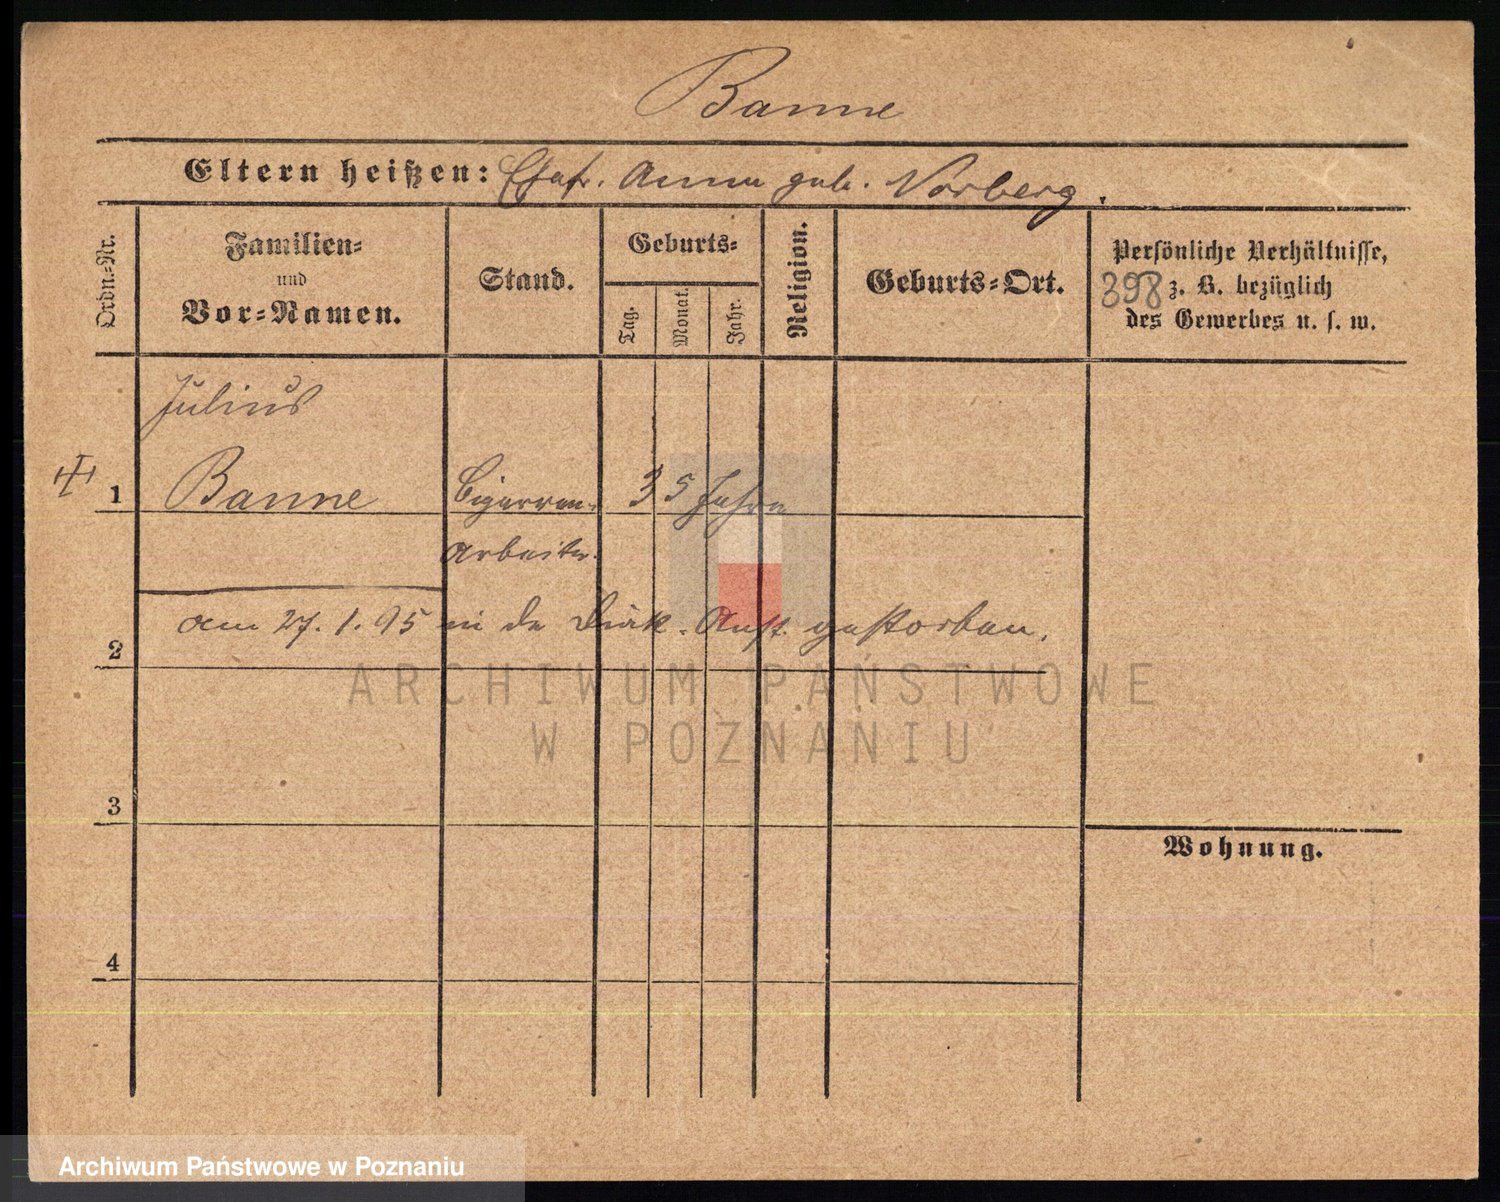 Banne
Eltern heißen: Ehefr. Anna geb. Vorberg.
Ordn.-Nr.
Familien-
und
Vor-Namen.
Stand.
Geburts-
Tag.
Monat.
Jahr.
Religion.
Geburts-Ort.
Persönliche Verhältnisse,
398 z. B. bezüglich
des Gewerbes u. s. w.
Julius
1 Banne Cigarren- 35 Jahre
Arbeiter.
2 am 27. 1. 95 in de Diak. Anst. gestorben.
ARCHIWUM PAŃSTWOWE
W POZNANIU
3
Wohnung.
4
Archiwum Państwowe w Poznaniu